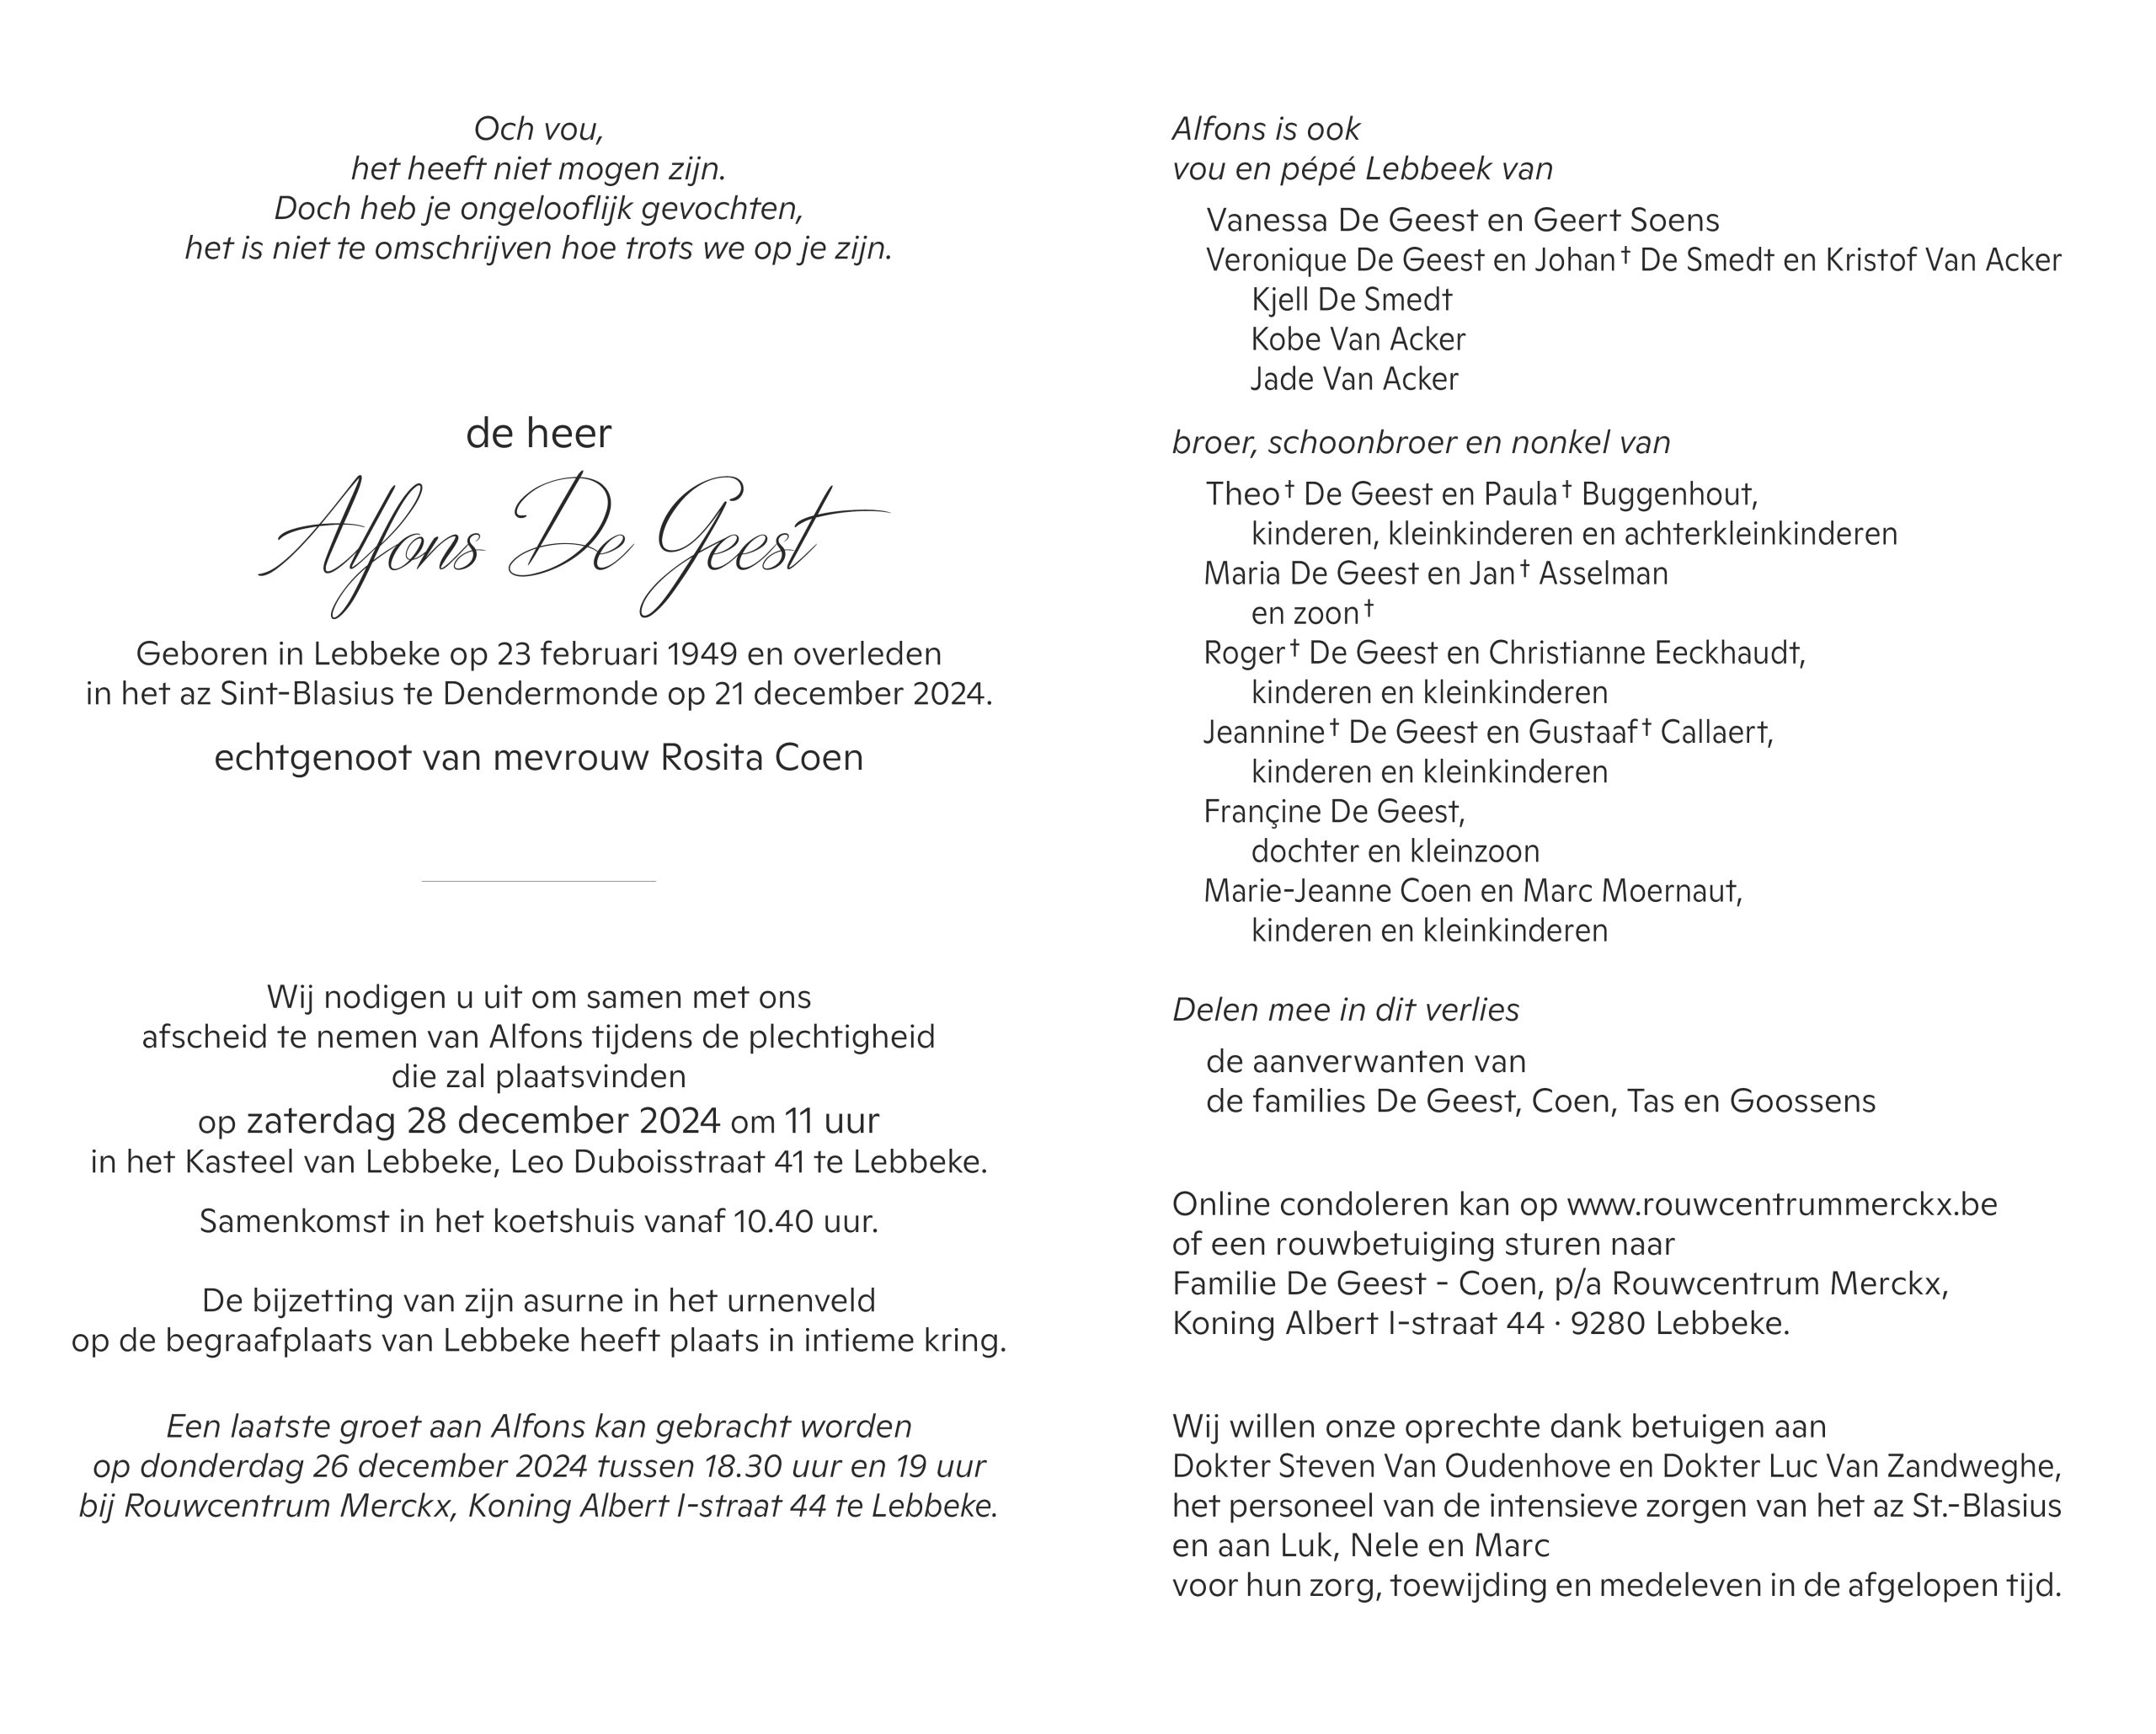 Och vou,
het heeft niet mogen zijn.
Doch heb je ongelooflijk gevochten,
het is niet te omschrijven hoe trots we op je zijn.
de heer
Alfons De Geest
Geboren in Lebbeke op 23 februari 1949 en overleden
in het az Sint-Blasius te Dendermonde op 21 december 2024.
echtgenoot van mevrouw Rosita Coen
Wij nodigen u uit om samen met ons
afscheid te nemen van Alfons tijdens de plechtigheid
die zal plaatsvinden
op zaterdag 28 december 2024 om 11 uur
in het Kasteel van Lebbeke, Leo Duboisstraat 41 te Lebbeke.
Samenkomst in het koetshuis vanaf 10.40 uur.
De bijzetting van zijn asurne in het urnenveld
op de begraafplaats van Lebbeke heeft plaats in intieme kring.
Een laatste groet aan Alfons kan gebracht worden
op donderdag 26 december 2024 tussen 18.30 uur en 19 uur
bij Rouwcentrum Merckx, Koning Albert I-straat 44 te Lebbeke.
Alfons is ook
vou en pépé Lebbeek van
Vanessa De Geest en Geert Soens
Veronique De Geest en Johan† De Smedt en Kristof Van Acker
Kjell De Smedt
Kobe Van Acker
Jade Van Acker
broer, schoonbroer en nonkel van
Theo† De Geest en Paula† Buggenhout,
kinderen, kleinkinderen en achterkleinkinderen
Maria De Geest en Jan† Asselman
en zoon†
Roger† De Geest en Christianne Eeckhaudt,
kinderen en kleinkinderen
Jeannine† De Geest en Gustaaf† Callaert,
kinderen en kleinkinderen
Françine De Geest,
dochter en kleinzoon
Marie-Jeanne Coen en Marc Moernaut,
kinderen en kleinkinderen
Delen mee in dit verlies
de aanverwanten van
de families De Geest, Coen, Tas en Goossens
Online condoleren kan op www.rouwcentrummerckx.be
of een rouwbetuiging sturen naar
Familie De Geest - Coen, p/a Rouwcentrum Merckx,
Koning Albert I-straat 44 · 9280 Lebbeke.
Wij willen onze oprechte dank betuigen aan
Dokter Steven Van Oudenhove en Dokter Luc Van Zandweghe,
het personeel van de intensieve zorgen van het az St.-Blasius
en aan Luk, Nele en Marc
voor hun zorg, toewijding en medeleven in de afgelopen tijd.